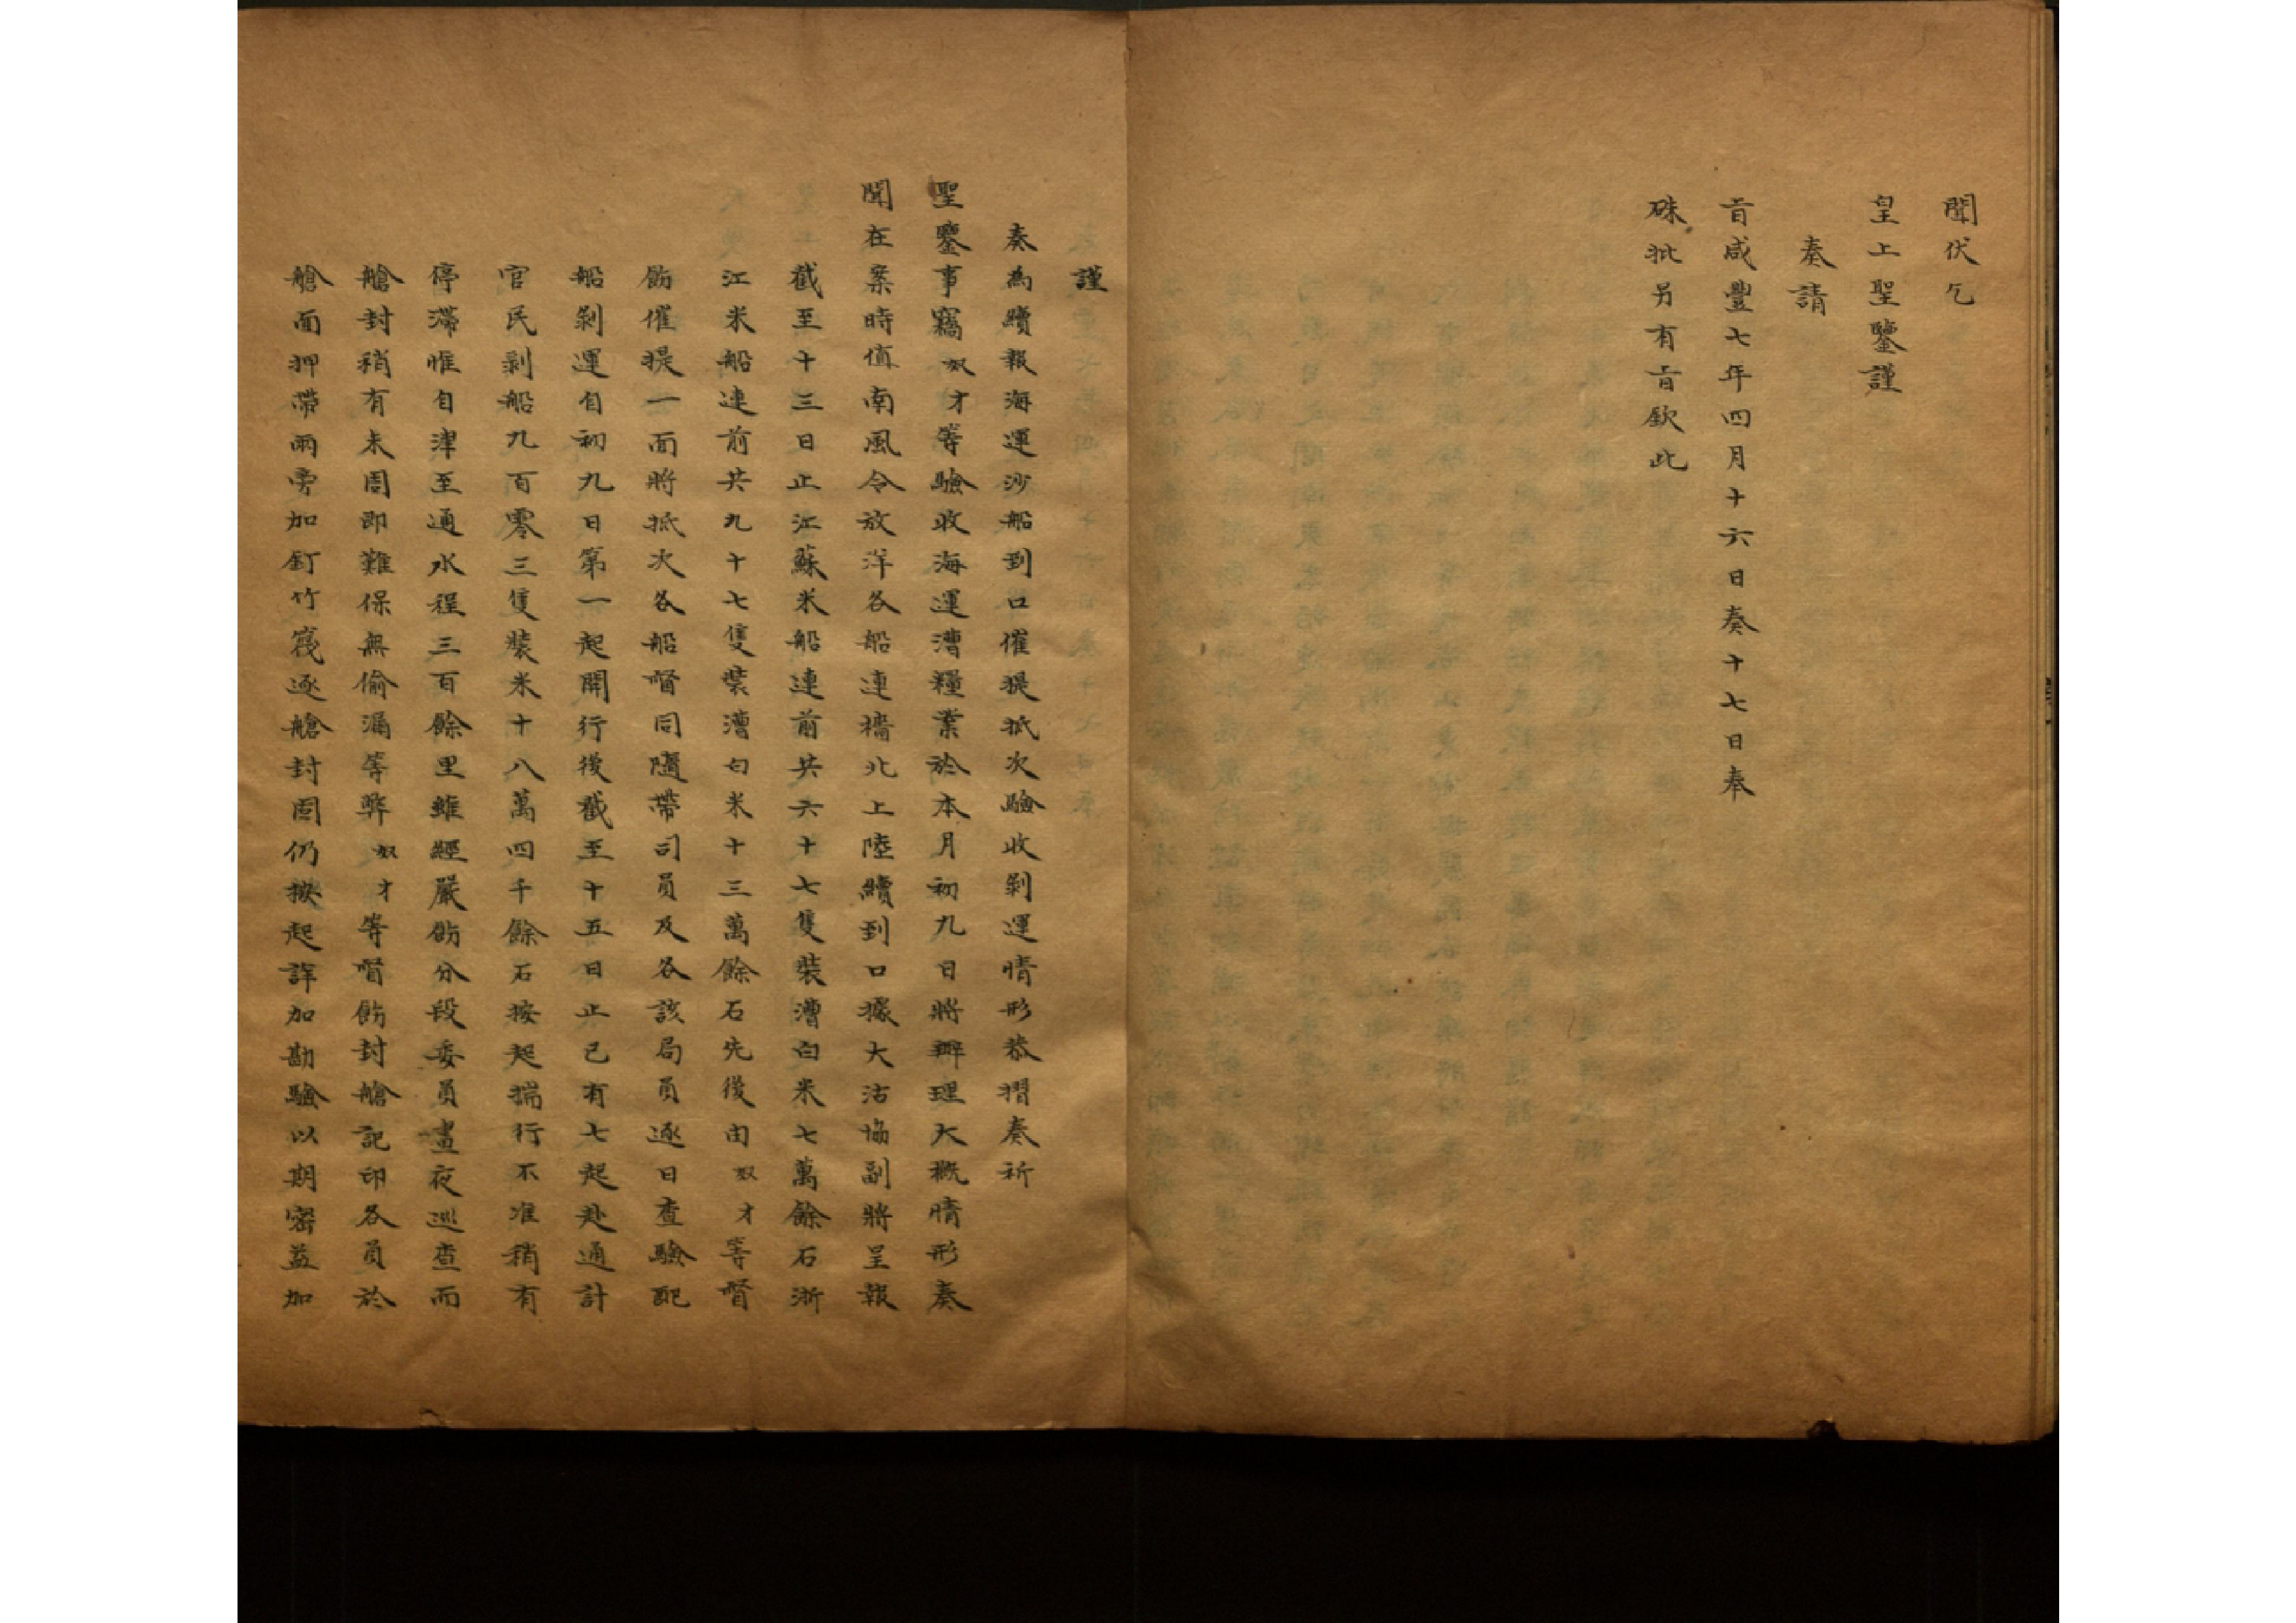 聞伏乞
皇上聖鑒謹
奏請
旨咸豐七年四月十六日奏十七日奉
硃批另有旨欽此
謹
奏為續報海運沙船到口催提抵次驗收剝運情形恭摺奏祈
聖鑒事竊奴才等驗收海運漕糧業於本月初九日將辦理大概情形奏
聞在案時值南風令放洋各船連檣北上陸續到口據大沽協副將呈報
截至十三日止江蘇米船連前共六十七隻裝漕白米七萬餘石浙
江米船連前共九十七隻裝漕白米十三萬餘石先後由奴才等督
飭催提一面將抵次各船督同隨帶司員及各該局員逐日查驗配
船剝運自初九日第一起開行後截至十五日止已有七起赴通計
官民剝船九百零三隻裝米十八萬四千餘石按起揣行不准稍有
停滯惟自津至通水程三百餘里雖經嚴飭分段委員晝夜巡查而
艙封稍有未周即難保無偷漏等弊奴才等督飭封艙記印各員於
艙面押帶兩旁加釘竹篾逐艙封固仍按起詳加勘驗以期密益加